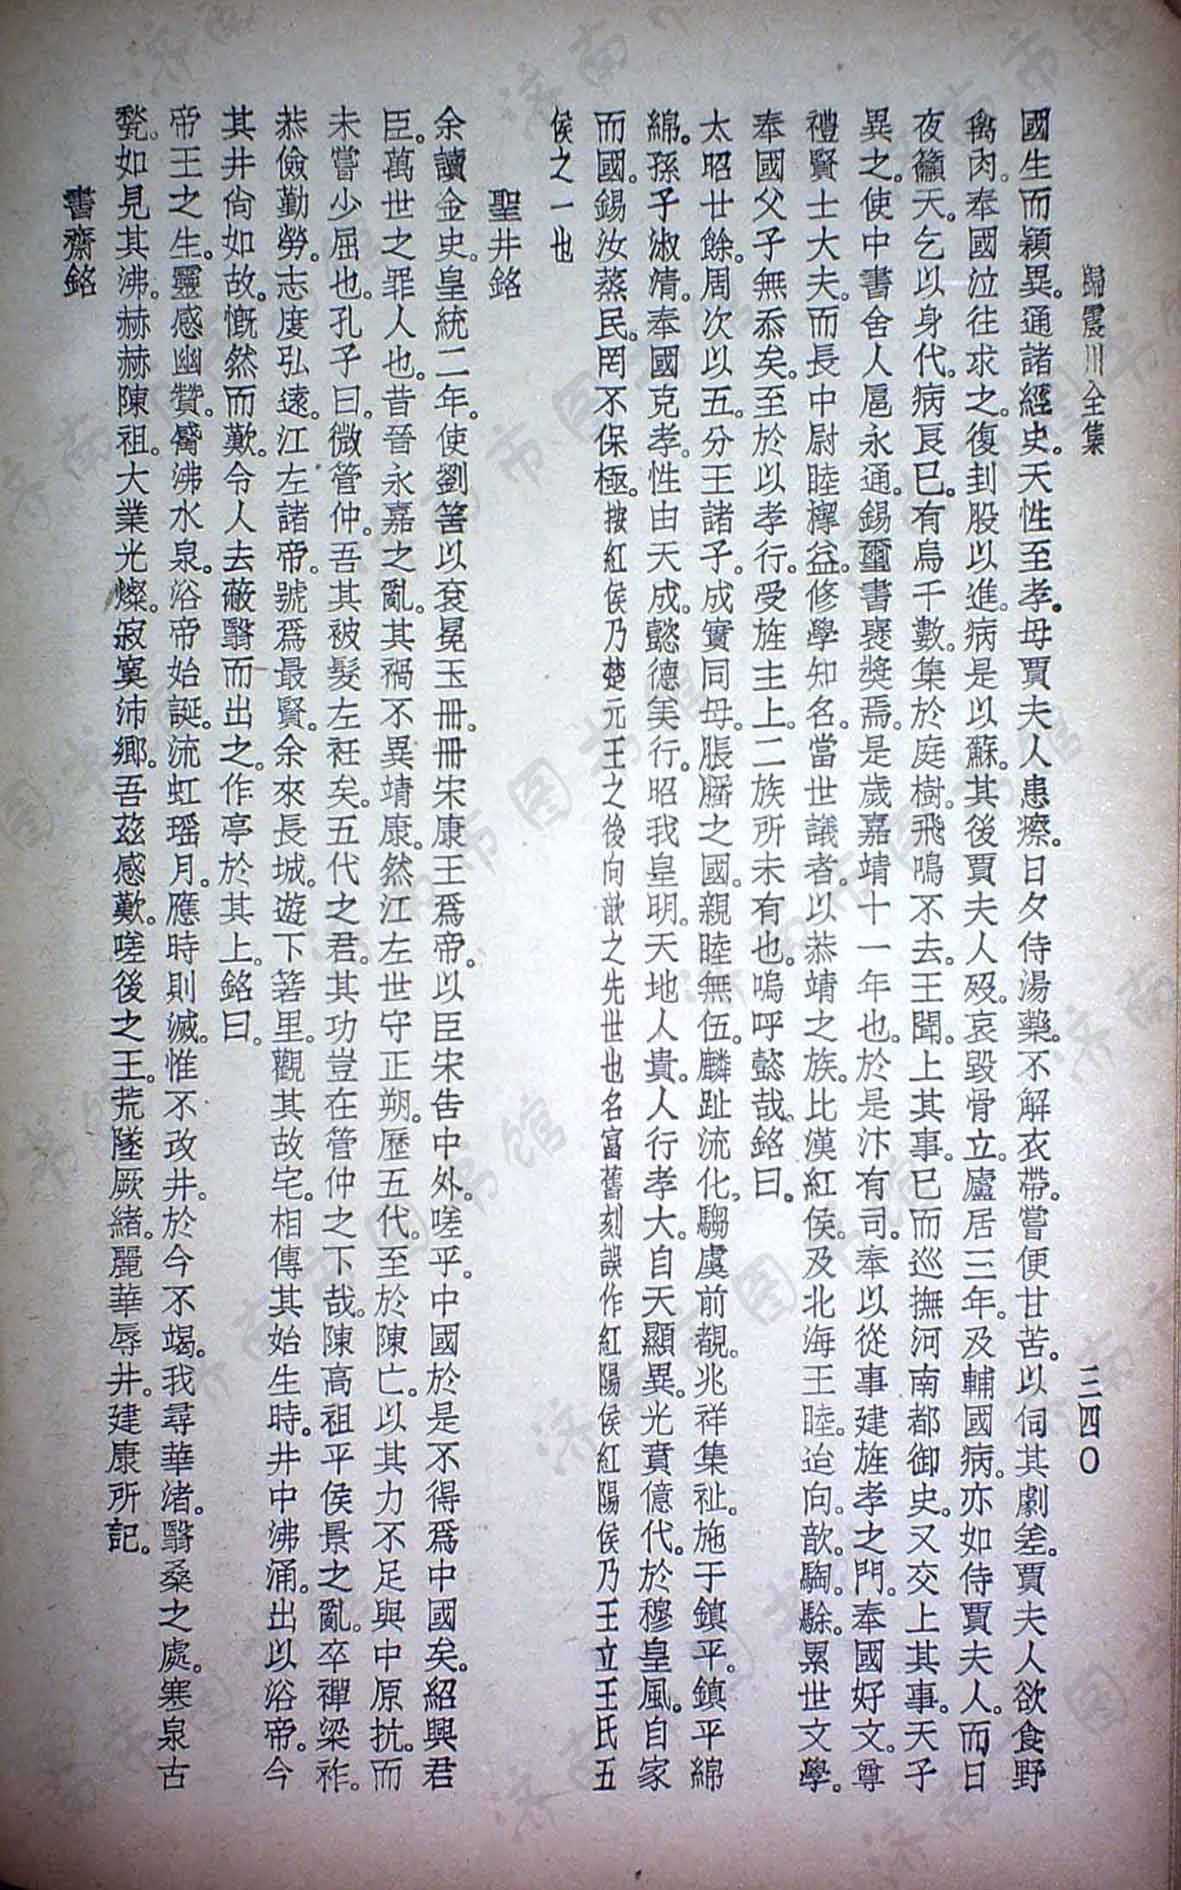 歸震川全集
三四〇
國生而穎異。通諸經史。天性至孝。母賈夫人患瘵。日夕侍湯藥。不解衣帶。嘗便甘苦。以伺其劇差。賈夫人欲食野
禽肉。奉國泣往求之。復刲股以進。病是以蘇。其後賈夫人歿。哀毀骨立。廬居三年。及輔國病。亦如侍賈夫人。而日
夜籲天。乞以身代。病良已。有烏千數。集於庭樹。飛鳴不去。王聞。上其事。已而巡撫河南都御史。又交上其事。天子
異之。使中書舍人扈永通。錫璽書褒獎焉。是歲嘉靖十一年也。於是汴有司。奉以從事。建旌孝之門。奉國好文。尊
禮賢士大夫。而長中尉睦㮮。益修學知名。當世議者。以恭靖之族。比漢紅侯。及北海王睦。迨向。歆。騊。駼。累世文學。
奉國父子無忝矣。至於以孝行。受旌主上。二族所未有也。嗚呼懿哉。銘曰。
太昭廿餘。周次以五。分王諸子。成實同母。脤膰之國。親睦無伍。麟趾流化。騶虞前覩。兆祥集祉。施于鎮平。鎮平綿
綿。孫子淑清。奉國克孝。性由天成。懿德美行。昭我皇明。天地人貴。人行孝大。自天顯異。光賁億代。於穆皇風。自家
而國。錫汝蒸民。罔不保極。按紅侯乃楚元王之後向歆之先世也名富舊刻誤作紅陽侯紅陽侯乃王立王氏五
侯之一也
聖井銘
余讀金史。皇統二年。使劉筈以袞冕玉冊。冊宋康王爲帝。以臣宋告中外。嗟乎。中國於是不得爲中國矣。紹興君
臣。萬世之罪人也。昔晉永嘉之亂。其禍不異靖康。然江左世守正朔。歷五代。至於陳亡。以其力不足與中原抗。而
未嘗少屈也。孔子曰。微管仲。吾其被髮左衽矣。五代之君。其功豈在管仲之下哉。陳高祖平侯景之亂。卒禪梁祚。
恭儉勤勞。志度弘遠。江左諸帝。號爲最賢。余來長城。遊下箬里。觀其故宅。相傳其始生時。井中沸涌。出以浴帝。今
其井尙如故。慨然而歎。令人去蔽翳而出之。作亭於其上。銘曰。
帝王之生。靈感幽贊。觱沸水泉。浴帝始誕。流虹瑶月。應時則滅。惟不改井。於今不竭。我尋華渚。翳桑之處。寒泉古
甃。如見其沸。赫赫陳祖。大業光燦。寂寞沛鄉。吾茲感歎。嗟後之王。荒墜厥緒。麗華辱井。建康所記。
書齋銘